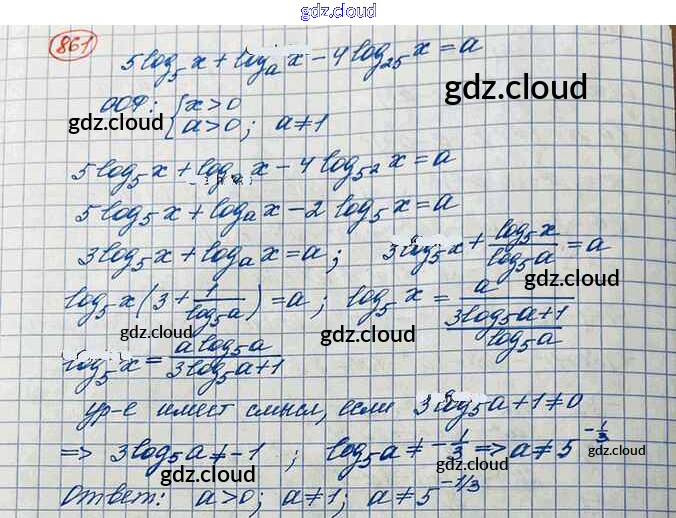 gdz.cloud
861
5log₅x + logₐx − 4log₂₅x = a
ООФ: { x > 0
a > 0; a ≠ 1
gdz.cloud
gdz.cloud
5log₅x + logₐx − 4log₅²x = a
gdz.cloud
5log₅x + logₐx − 2log₅x = a
3log₅x + logₐx = a; 3log₅x + log₅x/log₅a = a
gdz.cloud
gdz.cloud
log₅x(3 + 1/log₅a) = a; log₅x = a/((3log₅a+1)/log₅a)
gdz.cloud
gdz.cloud
log₅x = alog₅a/(3log₅a+1)
gdz.cloud
ур-е имеет смысл, если 3log₅a+1≠0
=> 3log₅a ≠ −1; log₅a ≠ −1/3 => a ≠ 5^(−1/3)
gdz.cloud
gdz.cloud
Ответ: a>0; a≠1; a≠5^(−1/3)